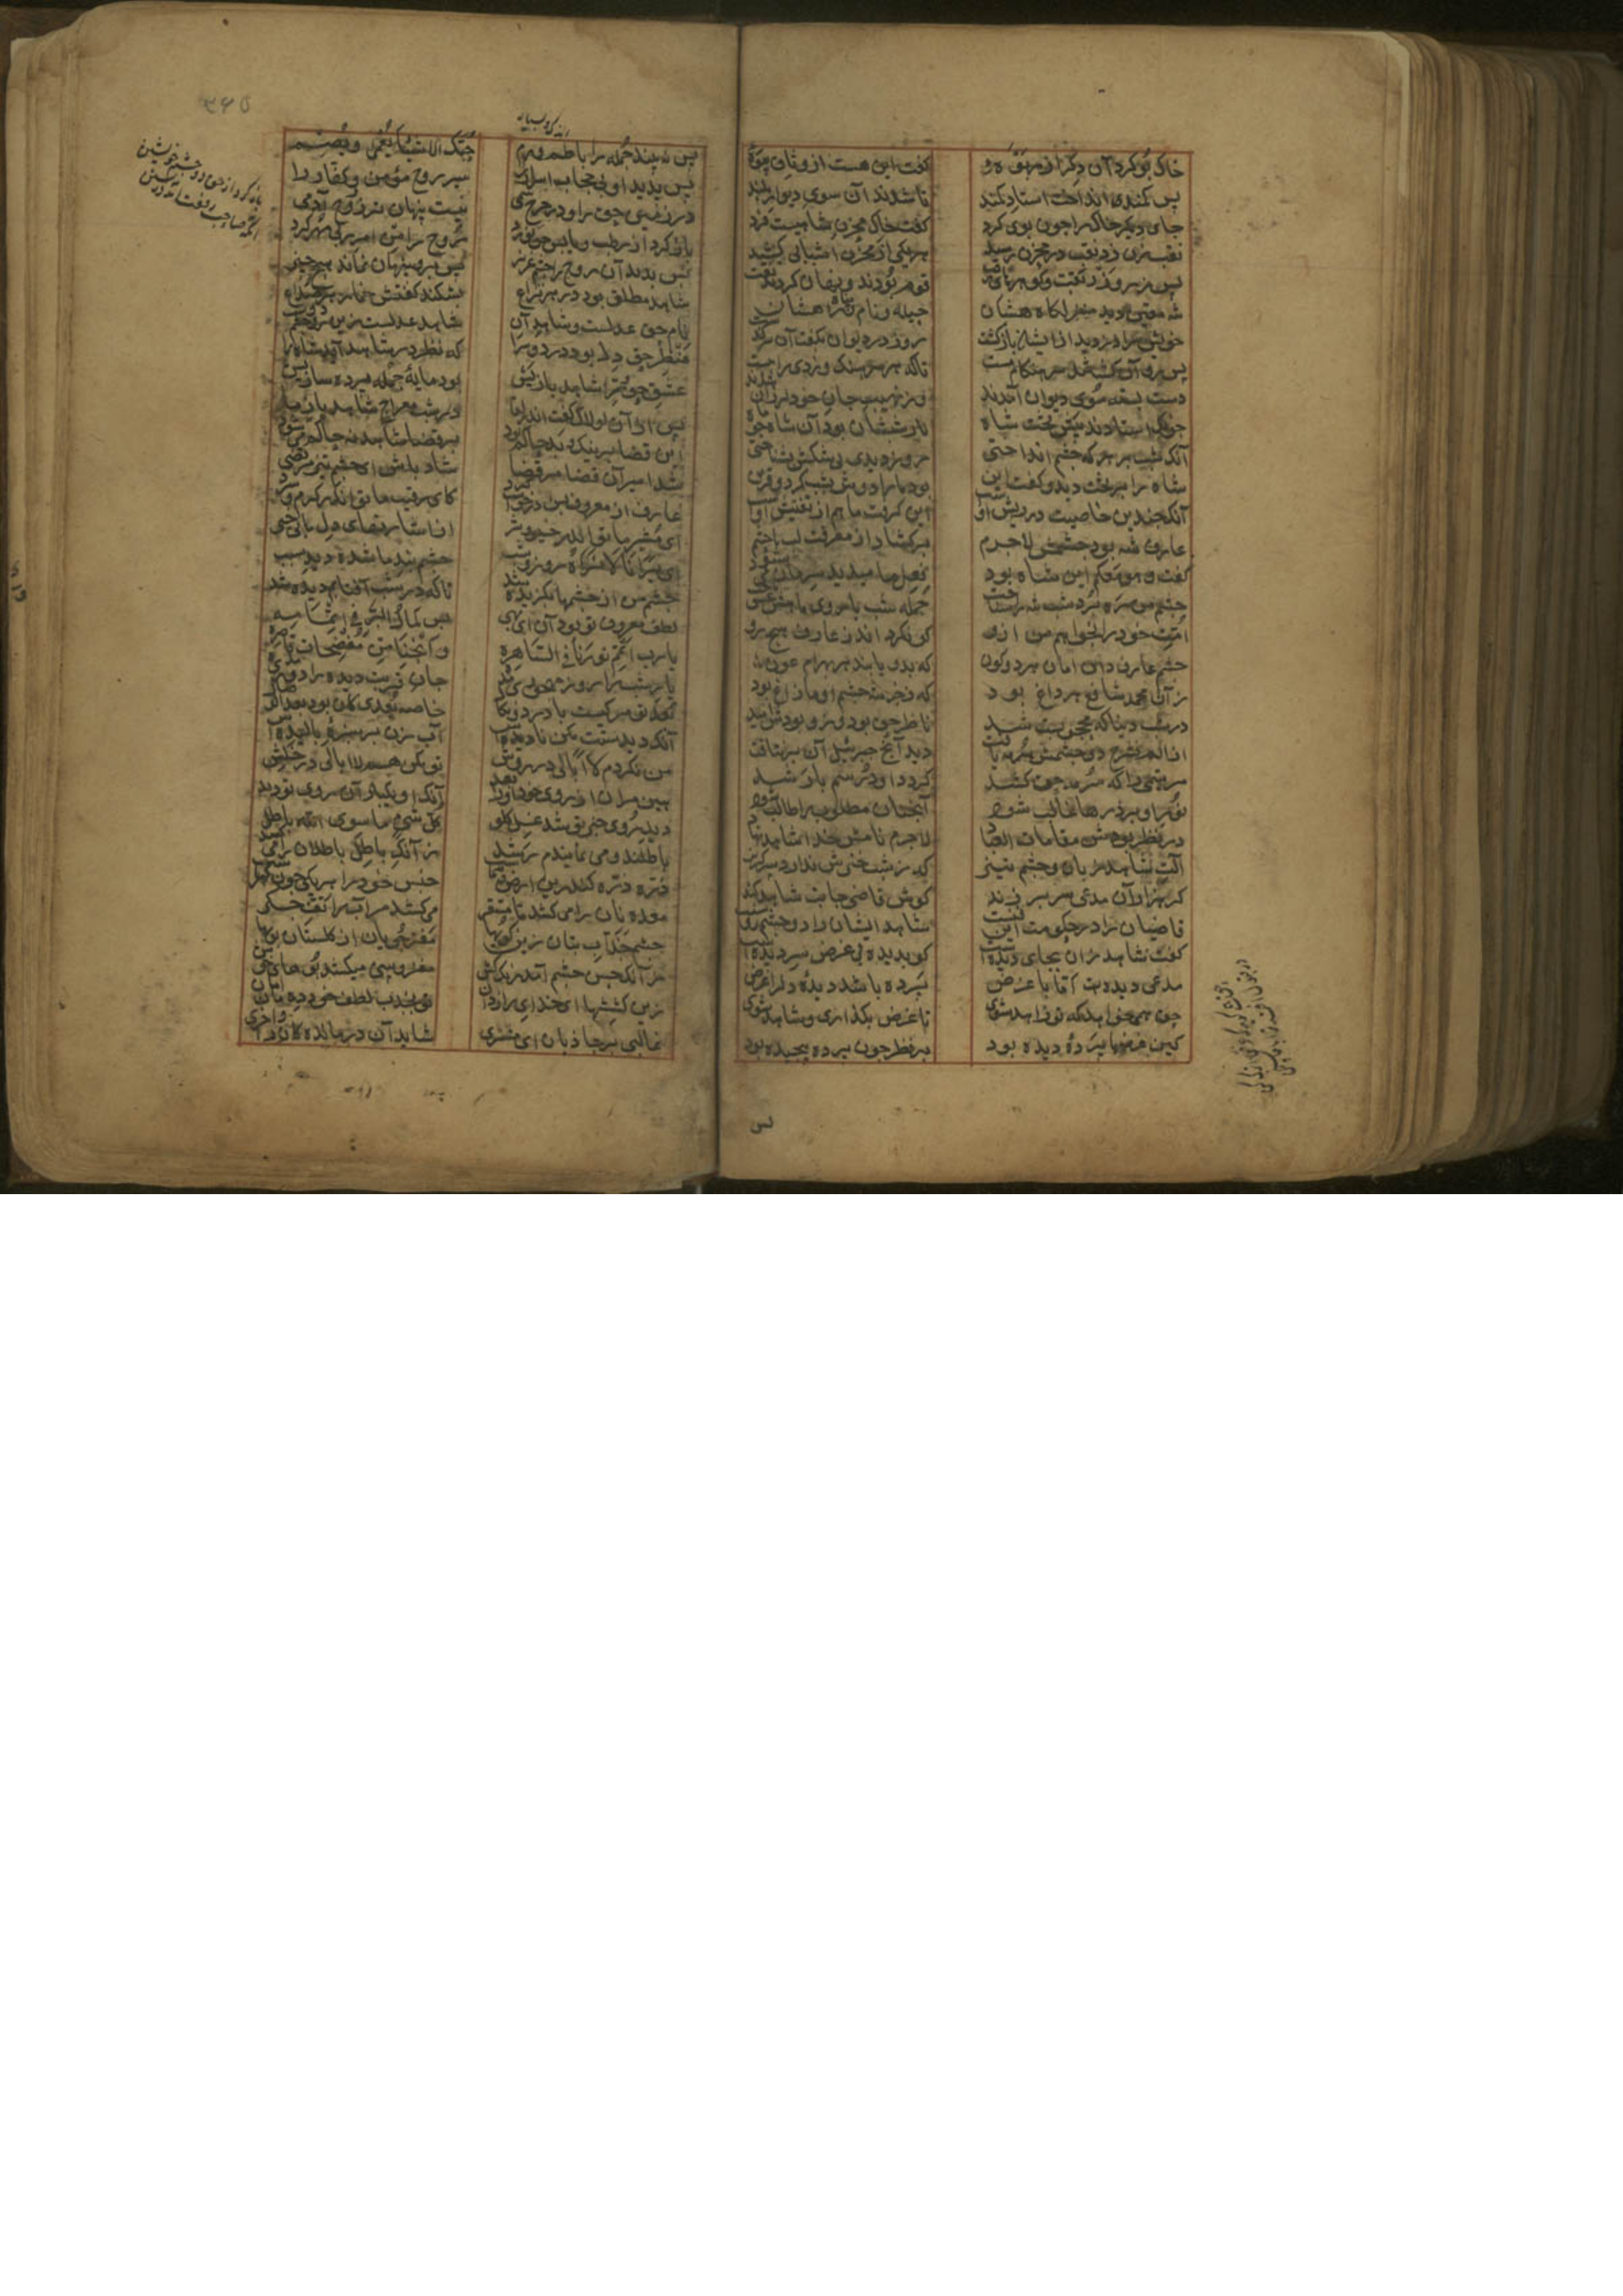 خاک بو کرد آن دگر از ربوه و گفت این هست از وثاق بیوه
پس کمندی انداخت استاد کمند تا شدند آن سوی دیوار بلند
جای دیگر خاک را چون بوی کرد گفت خاک مخزن شاهیست فرد
نقب زن زد نقب در مخزن رسید هر یکی از مخزن اسبابی کشید
پس زر و زربفت و گوهرهای زفت قوم بردند و نهان کردند تفت
شه معین دید منزلگاهشان حلیه و نام و پناه و راهشان
خویش را دزدید ازیشان بازگشت روز در دیوان بگفت آن سرگذشت
پس روان گشتند سرهنگان مست تا که هر سرهنگ دزدی را ببست
دست بسته سوی دیوان آمدند وز نهیب جان خود لرزان شدند
چونک استادند پیش تخت شاه یار شبشان بود آن شاه چو ماه
آنک شب بر هر که چشم انداختی روز دیدی بی شکش بشناختی
شاه را بر تخت دید و گفت این بود با ما دوش شب گرد و قرین
آنک چندین خاصیت در ریش اوست این گرفت ما هم از تفتیش اوست
عارف شه بود چشمش لاجرم برگشاد از معرفت لب با حشم
گفت و هو معکم این شاه بود فعل ما میدید و سرمان می شنود
چشم من ره برد شب شه را شناخت جمله شب با روی ماهش عشق باخت
امت خود را بخواهم من ازو کو نگرداند ز عارف هیچ رو
چشم عارف دان امان هر دو کون که بدو یابند هر بهرام عون
زآن محمد شافع هر داغ بود که ز جز شه چشم او ما زاغ بود
در شب دنیا که محجوبست شید ناظر حق بود و زو بودش امید
از الم نشرح دو چشمش سرمه یافت دید آنچ جبرئیل آن برنتافت
مر یتیمی را که سرمه حق کشد گردد او در یتیم با رشد
نور او بر ذرها غالب شود آنچنان مطلوب را طالب شود
در نظر بودش مقامات العباد لاجرم نامش خدا شاهد نهاد
آلت شاهد زبان و چشم تیز که ز شب خیزش ندارد سر گریز
گر هزاران مدعی سر بر زند گوش قاضی جانب شاهد کند
قاضیان را در حکومت این فنست شاهد ایشان را دو چشم روشنست
گفت شاهد زان بجای دیده است کو بدیده بی غرض سر دیده است
مدعی دیده ست اما با غرض پرده باشد دیده دل را غرض
حق همی خواهد که تو زاهد شوی تا غرض بگذاری و شاهد شوی
کین غرضها پرده دیده بود بر نظر چون پرده پیچیده بود
پس
۳۶۵
پس نه بیند جمله را با طم و رم حبک الاشیاء یعمی و یصم
پس بدید او بی حجاب اسرار را سیر روح مؤمن و کفار را
در زمین حق را و در چرخ سمی نیست پنهان تر ز روح آدمی
باز کرد از رطب و یابس حق نورد روح را من امر ربی مهر کرد
پس بدید آن روح را چشم عزیز پس برو پنهان نماند هیچ چیز
شاهد مطلق بود در هر نزاع بشکند گفتش خمار هر صداع
نام حق عدلست و شاهد آن اوست شاهد عدلست زین رو چشم دوست
منظر حق دل بود در دو سرا که نظر در شاهد آید شاه را
عشق حق و سر شاهد بازیش بود مایه جمله پرده سازیش
پس از آن لولاک گفت اندر لقا در شب معراج شاهد باز ما
این قضا بر نیک و بد حاکم بود بر قضا شاهد نه حاکم می شود
شد اسیر آن قضا میر قضا شاد باش ای چشم تیز مرتضی
عارف از معروف بس درخواست کرد کای رقیب ما تو اندر گرم و سرد
ای مشیر ما تو اندر خیر و شر از اشارتهای دل ما بی خبر
ای یرانا لا نراه روز و شب چشم بند ما شده دید سبب
چشم من از چشمها بگزیده شد تا که در شب آفتابم دیده شد
لطف معروف تو بود آن ای بهی پس کمال البر فی اتمامه
یا رب اتمم نورنا فی الساهره و انجنا من مفضحات قاهره
یار شب را روز مهجوری مده جان قربت دیده را دوری مده
بعد تو مرگیست با درد و نکال خاصه بعدی کان بود بعد الوصال
آنک دیدستت مکن نادیده اش آب زن بر سبزه بالیده اش
من نکردم لا ابالی در روش تو مکن هم لا ابالی در خلش
هین مران از روی خود او را بعید آنک او یکبار آن روی تو دید
دید روی جز تو شد غل گلو کل شیء ما سوی الله باطل
باطلند و می نمایندم رشد زانک باطل باطلان را می کشد
ذره ذره کاندرین ارض و سماست جنس خود را هر یکی چون کهرباست
معده نان را می کشد تا مستقر می کشد مر آب را تف جگر
چشم جذاب بتان زین کویها مغز جویان از گلستان بویها
زانک حس چشم آمد رنگ کش مغز و بینی میکشد بوهای خوش
زین کششها ای خدای رازدان تو بجذب لطف خود ده مان امان
غالبی بر جاذبان ای مشتری شاید ار درماندگان را واخری